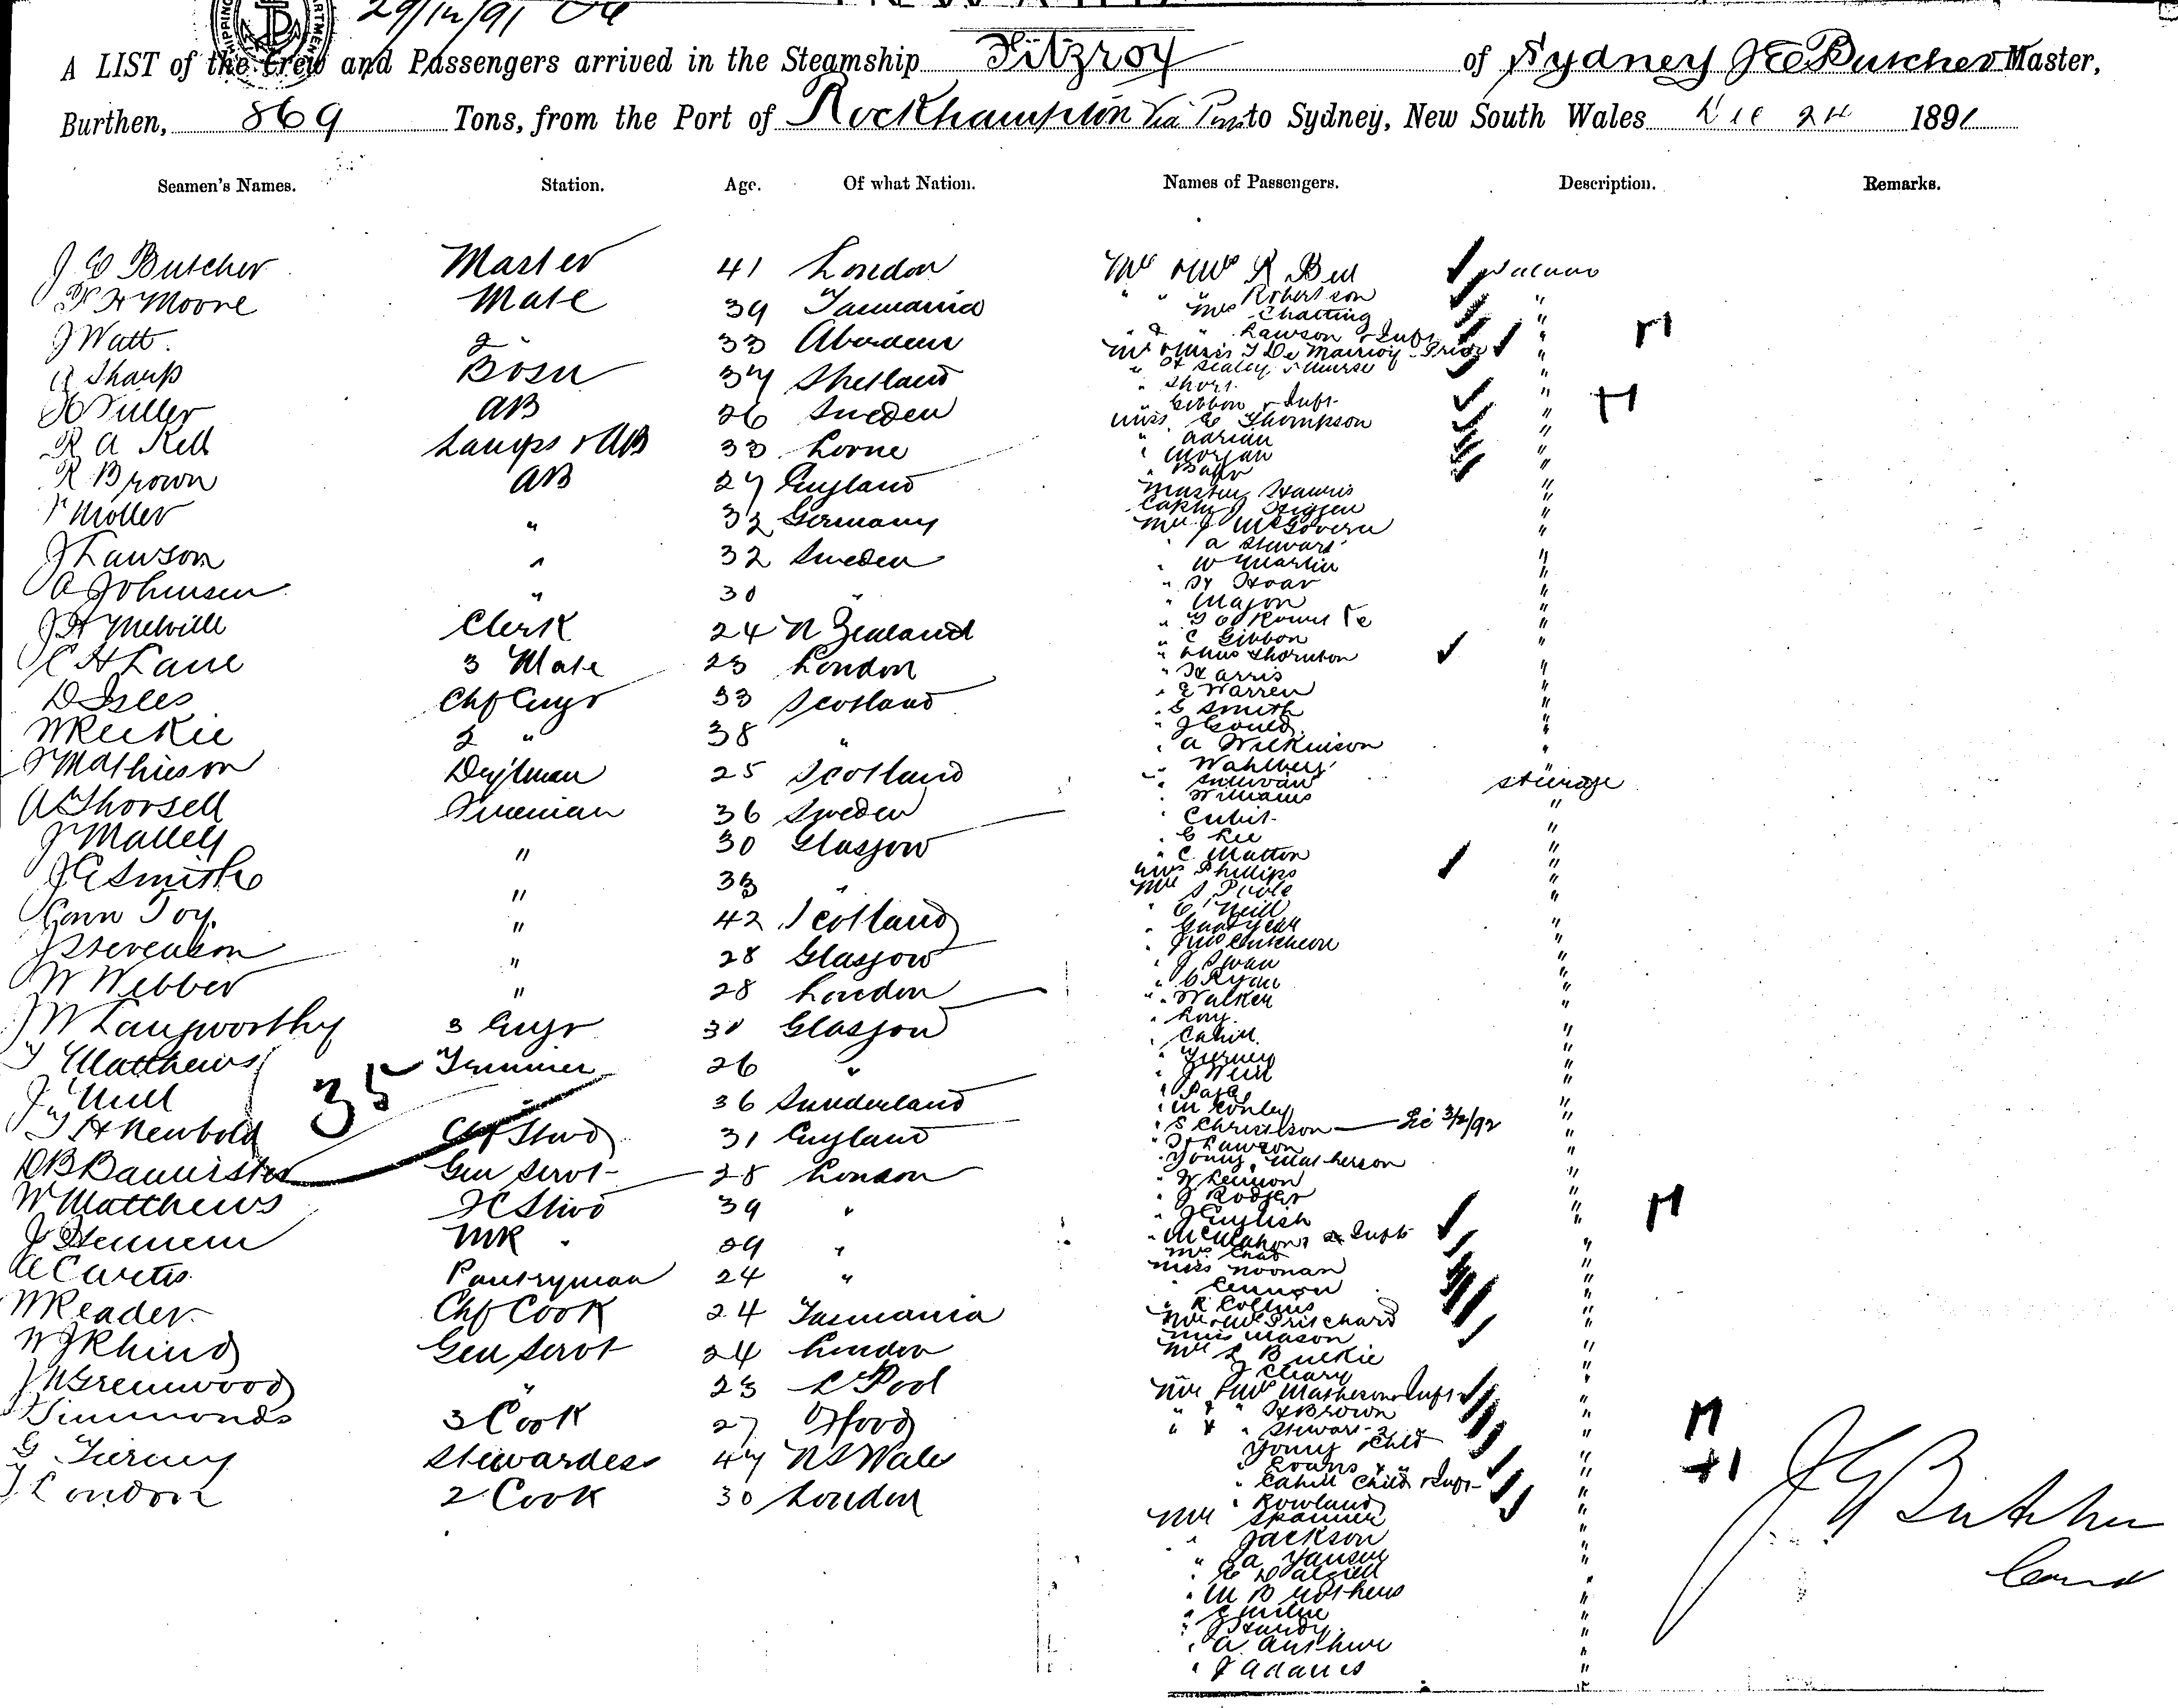 29/12/91
A LIST of the Crew and Passengers arrived in the Steamship Fitzroy of Sydney J E Butcher Master,
Burthen, 869 Tons, from the Port of Rockhampton Via Ports to Sydney, New South Wales Dec 24 1891
Seamen's Names. Station. Age. Of what Nation. Names of Passengers. Description. Remarks.
J E Butcher Master 41 London
Moore Mate 39 Tasmania
J Watt 2 " 33 Aberdeen
Sharp Bosn 37 Shetland
Fuller AB 26 Sweden
R A Kell Lamps & AB 33 Lorne
R Brown AB 27 England
Moller " 32 Germany
J Lawson " 32 Sweden
A Johnsen " 30 "
J H Melville Clerk 24 N Zealand
C H Lane 3 Mate 23 London
D Isles Chf Engr 33 Scotland
W Reekie 2 " 38 "
J Mathieson Dkyman 25 Scotland
A Thorsell Fireman 36 Sweden
J Mallell " 30 Glasgow
J G Smith " 33 "
Conn Toy " 42 Scotland
J Stevenson " 28 Glasgow
W Webber " 28 London
J W Langworthy 3 Engr 30 Glasgow
T Matthews Trimmer 26 "
J Neill " 36 Sunderland
35
T H Newbold Chf Stwd 31 England
D B Bannister Gen Servt 28 London
W Matthews F C Stwd 39 "
J Hennem MR " 29 "
A E Curtis Pantryman 24 "
W Reader Chf Cook 24 Tasmania
W J Rhind Gen Servt 24 London
J W Greenwood " 23 L Pool
Simmonds 3 Cook 27 Oxford
G Tierney Stewardess 47 N S Wales
J London 2 Cook 30 London
Mr & Mrs R Bell Saloon
" " " Robertson "
Mrs Chatting "
" & " Lawson & Inft "
" H Sealey & Nurse "
" Short "
" Gibbon & Inft "
Miss E Thompson "
" Adrian "
" Morgan "
Master Harris "
Mr J McGovern "
" A Stewart "
" W Martin "
" H Hoar "
" Major "
" C Gibbon "
" Thornton "
" Harris "
" E Warren "
" E Smith "
" J Gould "
" A Wilkinson "
" Wahlberg "
" Sullivan Steerage
" Williams "
" Cubit "
" G Lee "
" C Matton "
Mrs Phillips "
Mr S Poole "
" O'Neill "
" Goodyear "
" J McCutcheon "
" J Swan "
" O Ryan "
" Walker "
" Cahill "
" Tierney "
" J Weir "
" Page "
" M Conley "
" S Christison — 3/2/92
" Lawson "
" Young, Matherson "
" W Lennon "
" J Rodger "
" J English "
" McMahon & Inft "
Mrs Chas "
Miss Noonan "
" Lennon "
" R Collins "
Mr & Mrs Pritchard "
Miss Mason "
Mr L Buckie "
J Cleary "
Mr & Mrs Matheson & Inft "
" & " H Brown "
" & " Stewart "
Young & Child "
" Evans & " "
" Cahill Child & Inft "
" Rowland "
Mr Spanner "
" Jackson "
" A Yansen "
" E Dalziell "
" M B Mothers "
" E Milne "
" J Handy "
" A Anthure "
" J Adams "
J E Butcher
Comd